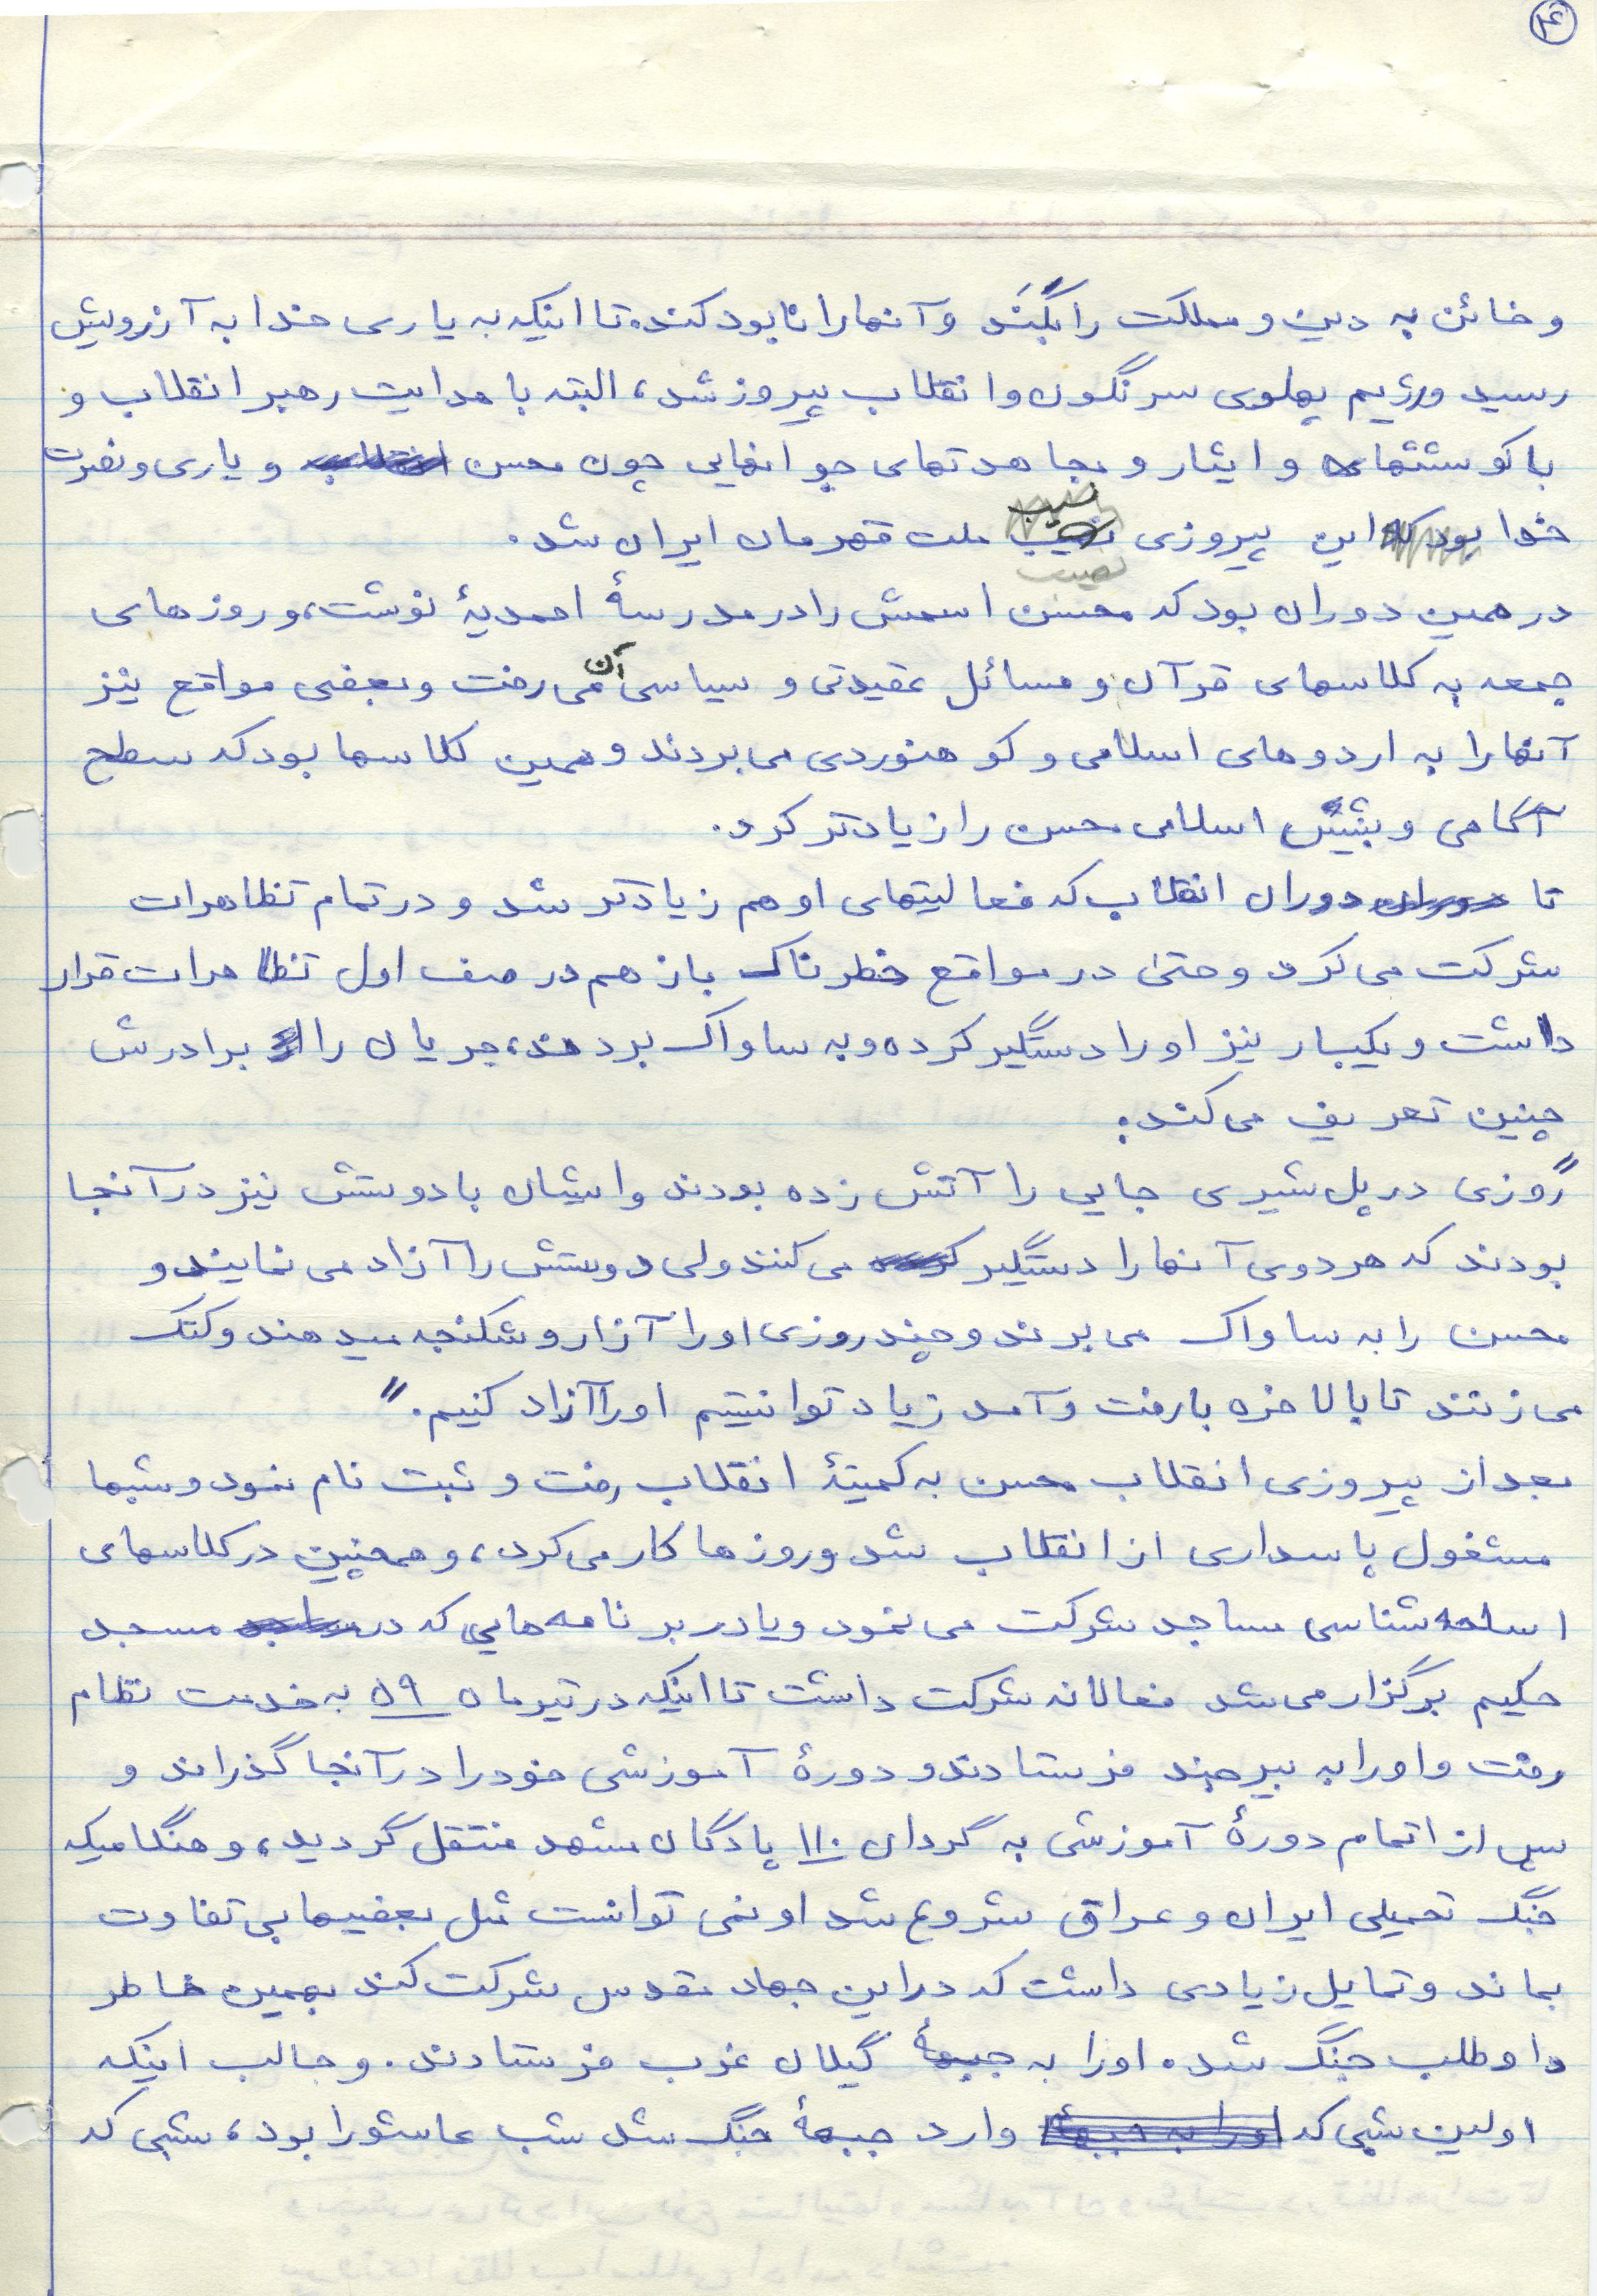 ۴
و خائن به دین و مملکت را بگیَرَد و آنها را نابود کند. تا اینکه به یاری خدا به آرزویش
رسید و رژیم پهلوی سرنگون و انقلاب پیروز شد، البته با هدایت رهبر انقلاب و
با کوششهای و ایثار و مجاهدتهای جوانهایی چون محسن و یاری و نصرت
خدا بود که این پیروزی نصیب ملت قهرمان ایران شد.
در همین دوران بود که محسن اسمش را در مدرسهٔ احمدیهٔ نوشت، و روزهای
جمعه به کلاسهای قرآن و مسائل عقیدتی و سیاسی آن می رفت و بعضی مواقع نیز
آنها را به اردوهای اسلامی و کوهنوردی می بردند و همین کلاسها بود که سطح
آگاهی و بینش اسلامی محسن را زیادتر کرد.
تا دوران انقلاب که فعالیتهای او هم زیادتر شد و در تمام تظاهرات
شرکت می کرد و حتیٰ در مواقع خطرناک باز هم در صف اول تظاهرات قرار
داشت و یکبار نیز او را دستگیر کرده و به ساواک بردند، جریان را برادرش
چنین تعریف می کند:
"روزی در پل شیری جایی را آتش زده بودند و ایشان با دوستش نیز در آنجا
بودند که هر دوی آنها را دستگیر می کنند ولی دوستش را آزاد می نمایند و
محسن را به ساواک می برند و چند روزی او را آزار و شکنجه میدهند و کتک
می زنند تا بالاخره با رفت و آمد زیاد توانستیم او را آزاد کنیم."
بعد از پیروزی انقلاب محسن به کمیتهٔ انقلاب رفت و ثبت نام نمود و شبها
مشغول پاسداری از انقلاب شد و روزها کار می کرد، و همچنین در کلاسهای
اسلحه شناسی مساجد شرکت می نمود و یا در برنامه هایی که در مسجد
حکیم برگزار می شد فعالانه شرکت داشت تا اینکه در تیر ماه ۵۹ به خدمت نظام
رفت و او را به بیرجند فرستادند و دورهٔ آموزشی خود را در آنجا گذراند و
پس از اتمام دورهٔ آموزشی به گردان ۱۱۰ پادگان مشهد منتقل گردید، و هنگامیکه
جنگ تحمیلی ایران و عراق شروع شد او نمی توانست مثل بعضیها بی تفاوت
بماند و تمایل زیادی داشت که در این جهاد مقدس شرکت کند بهمین خاطر
داوطلب جنگ شد. او را به جبههٔ گیلان غرب فرستادند. و جالب اینکه
اولین شبی که وارد جبههٔ جنگ شد شب عاشورا بود، شبی که